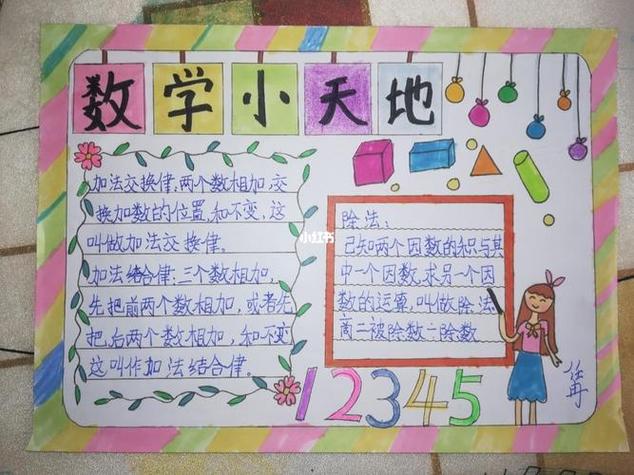 数学小天地
加法交换律:两个数相加,交
换加数的位置,和不变,这
叫做加法交换律。
加法结合律:三个数相加,
先把前两个数相加,或者先
把后两个数相加,和不变
这叫作加法结合律。
小红书
除法:
已知两个因数的积与其
中一个因数,求另一个因
数的运算,叫做除法.
商=被除数÷除数
12345